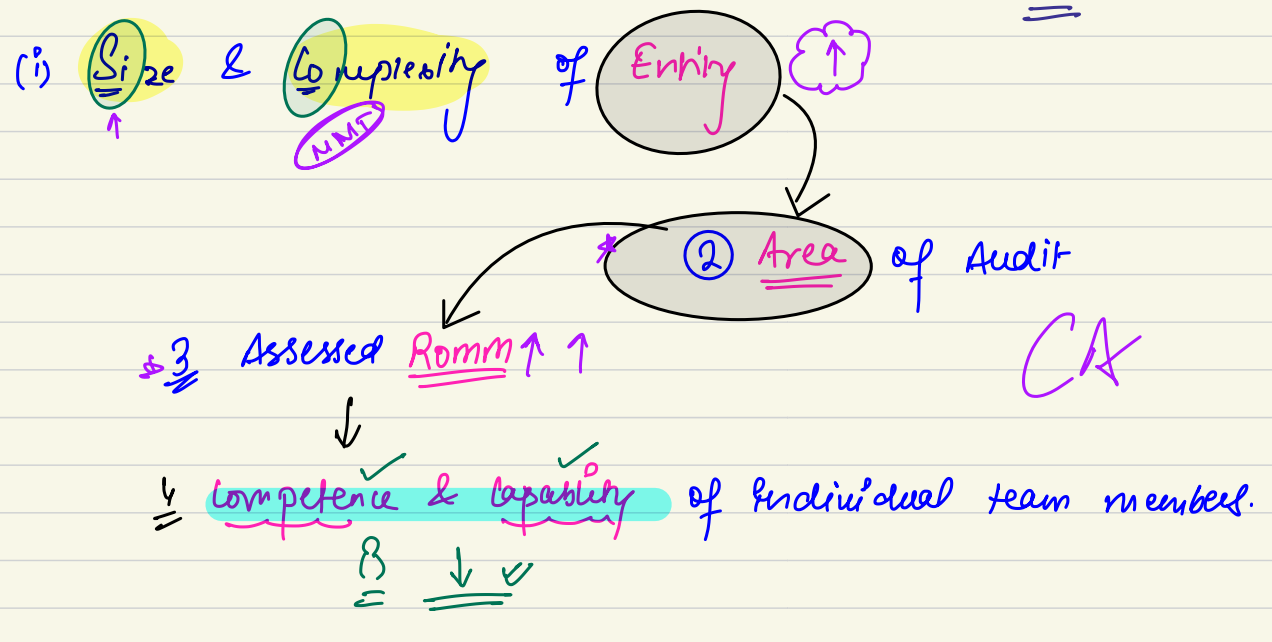 (i) Size & Complexity of Entity ↑
↑ MMT
② Area of Audit
3 Assessed Romm ↑ ↑
CA
4 Competence & Capability of individual team members.